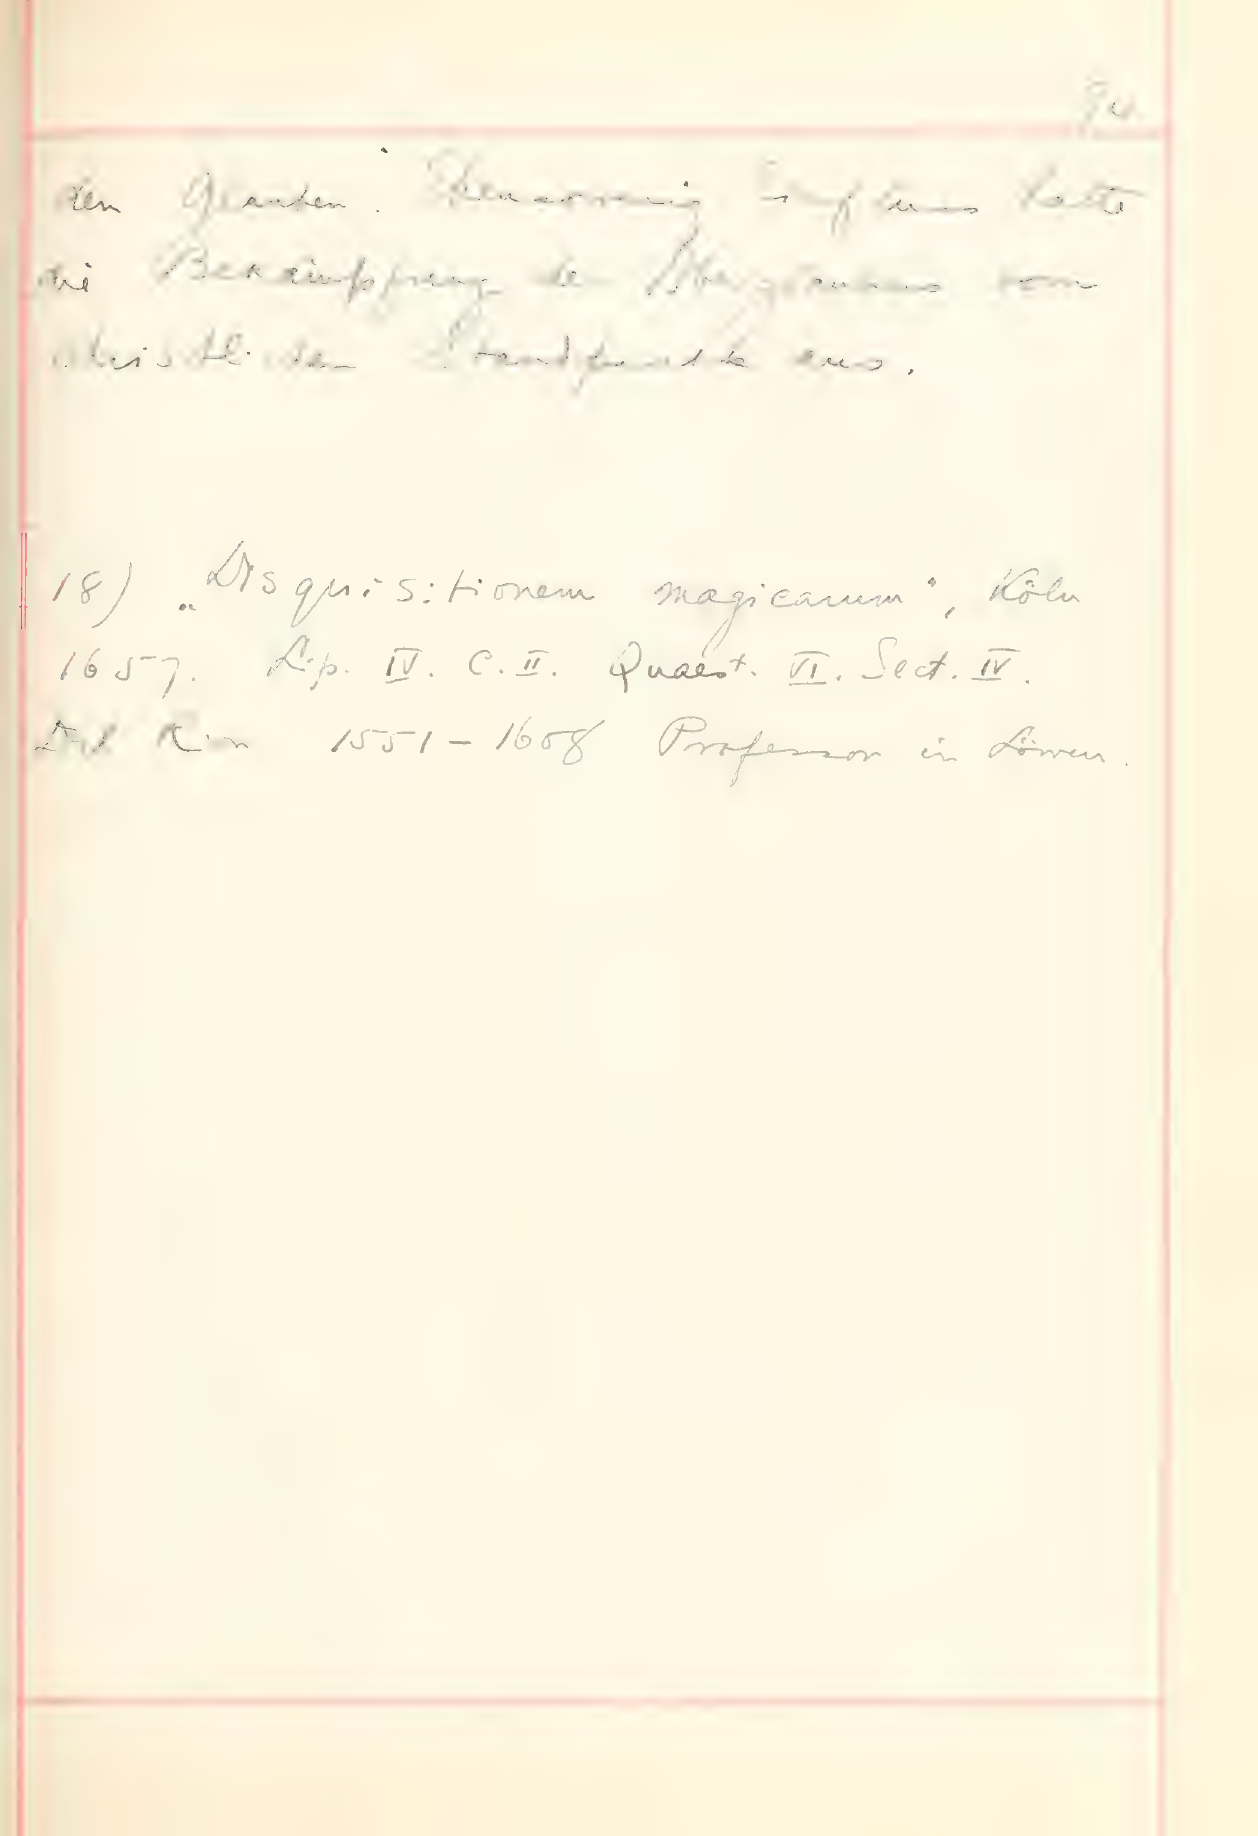 94
den Glauben. Ebensowenig Einfluss hatte
die Bekämpfung des Aberglaubens vom
christlichen Standpunkte aus.
18) „Disquisitionem magicarum“, Köln
1657. Lip. IV. C. II. Quaest. VI. Sect. IV.
Del Rion 1551–1608 Professor in Löwen.